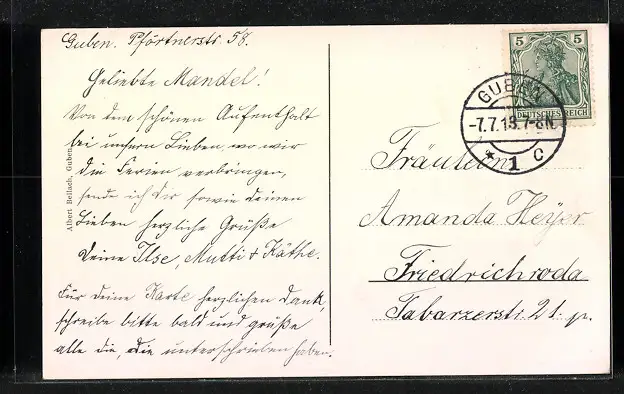 Guben. Pförtnerstr. 58.
Geliebte Mandel!
Von dem schönen Aufenthalt
bei unsern Lieben, wo wir
die Ferien verbringen,
sende ich Dir sowie deinen
Lieben herzliche Grüße
Deine Ilse, Mutti + Käthe.
Für deine Karte herzlichen Dank,
schreibe bitte bald und grüße
alle die, die unterschrieben haben.
Albert Bellach, Guben
5 5
DEUTSCHES REICH
GUBEN
-7.7.18.7-8N.
* 1 C
Fräulein
Amanda Heyer
Friedrichroda
Tabarzerstr. 21 p.